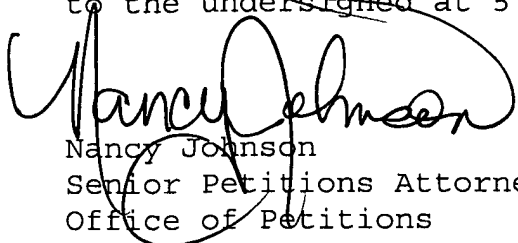 to the undersigned at 5
Nancy Johnson
Nancy Johnson
Senior Petitions Attorne
Office of Petitions